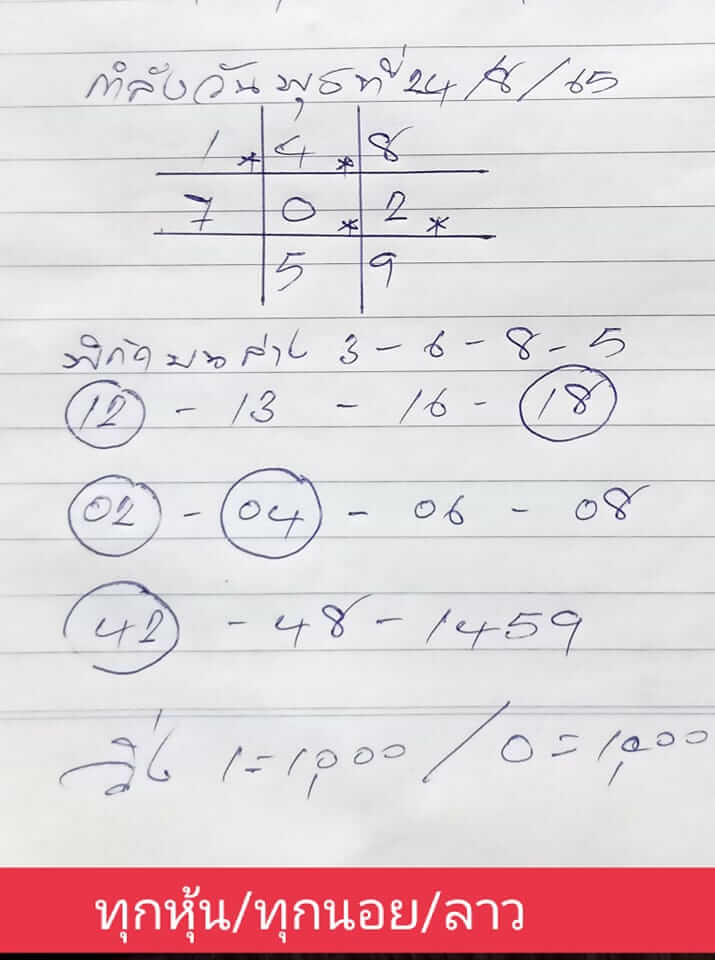 กำลังวันพุธที่ 24/8/65
1 * 4 * 8
7 0 * 2 *
5 9
พิกัดบนล่าง 3-6-8-5
12 - 13 - 16 - 18
02 - 04 - 06 - 08
42 - 48 - 1459
วิ่ง 1=1,000 / 0=1,000
ทุกหุ้น/ทุกนอย/ลาว